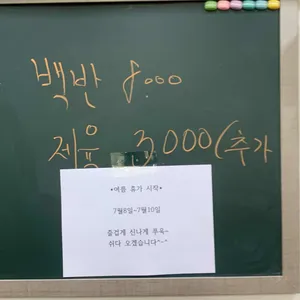 백반 8.000
제육 3,000(추가
*여름 휴가 시작*
7월8일~7월10일
즐겁게 신나게 푸욱~
쉬다 오겠습니다^-^